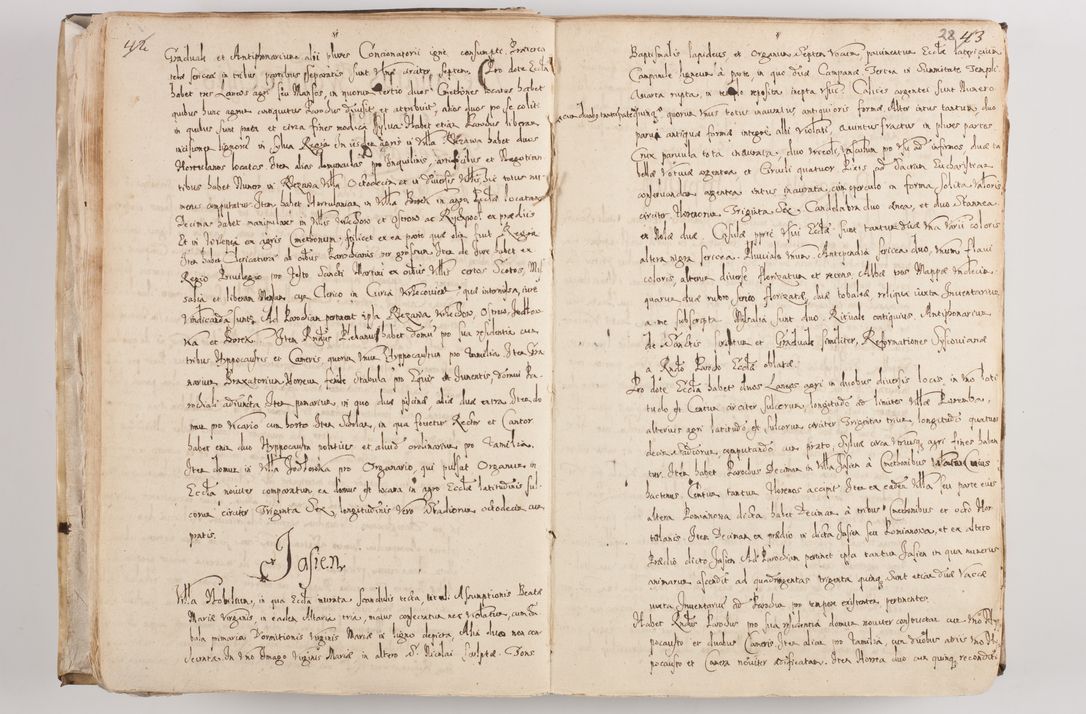 42
Graduale et Antiphonarium alij plures Concionatorij igne consumpti. Praeterea
tela sericea in tribus partibus separatis sunt Ulnae circiter septem. Pro dote Eccl̃a
habet tres Laneos agri seu Mansos, in quorum tertio duos Cmethones locatos habet
quibus hunc agrum antiquitus Parochus divisit et attribuit, alios duos pro se colit
in quibus sunt prata et circa fines modica Sylva. Habet etiam Parochus liberam
incisionem lignorum in Sylva Regia. In iisdem agris in Villa Rżezawa habet duos
Hortulanos locatos. Item alias domunculas pro Inquilinis, artificibus et Negotian
tibus habet Numero in Rżezawa Villa Octodecim et in diversis Villis, hic totus nu
merus computatur. Item habet Hortulanum in Villa Borek in agro Eccl̃ae locatum
Decimam habet manipularem in Villis Wrzechow et Ostrow ac Rychgool ex praedijs
Et in Jodlowka ex agris Cmethonum, scilicet ex ea parte quae olim fuit Regia
Item habet Clericaturam ab omnibus Parochianis per grossum. Item de Jure habet ex
Regio Privilegio pro festo Sancti Martini ex omnibus Villis certos Scotos, Mis
salia et liberam Mensam cum Clerico in Curia Wisnicensi quae intermissa, iure
vindicanda sunt. Ad Parochiam pertinent ipsa Rżezawa Wrzechow, Ostrow, Jodłow
ka et Borek. Item Rndus Plebanus habet domum pro sua residentia cum
tribus Hypocaustis et Cameris quorum unum Hyppocaustum pro familia. Item Gra
narium Braxatorium Horreum foenile stabula pro Equis et Jumentis, domui Pa
rochiali adiuncta. Item pomarium in quo duae piscinae, alia duae extra. Item do
mus pro Vicario cum horto. Item Schola, in qua fovetur Rector et Cantor
habet enim duo Hypocausta notatius et aliud ordinarium pro familia.
Item domus in Villa Jodłowka pro Organario, qui pulsat Organum in
Eccl̃a noviter comparatum, ea domus est locata in agro Eccl̃ae latitudinis sul
corum circiter Triginta Sex, longitudinis vero Stadiorum octodecim cum
pratis.
Jasien
Villa Nobilium, in qua Eccl̃a murata, scandulis tecta, tituli Assumptionis Beatae
Mariae Virginis, in eadem Altaria tria, maius consecratum nec violatum, cum Ta
bula primaria Dormitionis Virginis Mariae in ligno depicta, Alia duo non con
secrata. In uno Imago Virginis Mariae in altero S. Nicolai sculptae. Fons
28 43
Baptismalis lapideus et Organum Septem vocum, pavimentum Eccl̃ae latericium
Campanile ligneum à parte, in quo duae Campanae Tertia in Summitate Templi.
Quarta rupta, in templo reposita inepta usui. Calices argentei sunt Numero
cum duabus tantum patenis quinque quorum unus totus inauratus antiquioris formae. Alter intus tantum, duo
parvi antiquae formae integri, alij violati, a, unus fractus in plures partes.
Crux parvula tota inaurata, duo urceoli, Vasculum pro usu ad infirmos, duae ta
bellae votivae argenteae et Circuli quatuor. Pixis pro Sacram Eucharistiam
conservandam argentea intus inaurata, cum operculo in forma solita Valoris
circiter florenorum Triginta Sex. Candelabra duo aenea, et duo Stannea.
ex Nolae duae. Casulae pp̃ri usui Eccl̃ae sunt tantum duae una varij coloris
altera nigra sericea. Pluviale unum. Antipendia sericea duo, unum flavi
coloris, alterum diversae florizatum et recens, Albae tres Mappae undecim
quarum duae rubro serico florizatae, duae tobaleae, reliqua iuxta Inventarium
a me subscripta. Missalia sunt duo, Rituale antiquum, Antiphonarium
de Sanctis scriptum et Graduale similiter, Reformationes Episcopianae
a Rndo Parocho Eccl̃ae oblatae.
Pro dote Eccl̃a habet duos Laneos agri in duobus diversis locis, in uno lati
tudo est Centum circiter Sulcorum, longitudo ad limites Villae Poremba,
alterius agri latitudo est Sulcorum circiter Triginta trium, longitudo quatuor
decim stadiorum, computando cum prato. Sylvae circa utriusque agri fines haben
tur. Item habet Parochus Decimam in Villa Jasien à Cmethonibus
hactenus Centum tantum florenos accipit. Item ex eadem Villa seu parte eius
altera Romianowa dicta habet Decimam à tribus Cmethonibus et octo Hor
tulanis. Item Decimam ex praedio in dicta Jasien seu Romianowa, et ex altero
Praedio dicto Jasien. Ad Parochiam pertinet ipsa tantum Jasien in qua numerus
animarum ascendit ad quadringentas triginta quinque. Sunt etiam duae Vaccae
iuxta Inventarium ad Parochum pro tempore existentem pertinentes.
Habet Rndus Parochus pro sua residentia domum noviter constructam cum uno Hy
pocausto et duabus Cameris. Item aliam pro familia, cum duobus atrijs uno Hy
pocausto et Camera noviter aedificatam. Item Horrea duo cum quinque reconditi